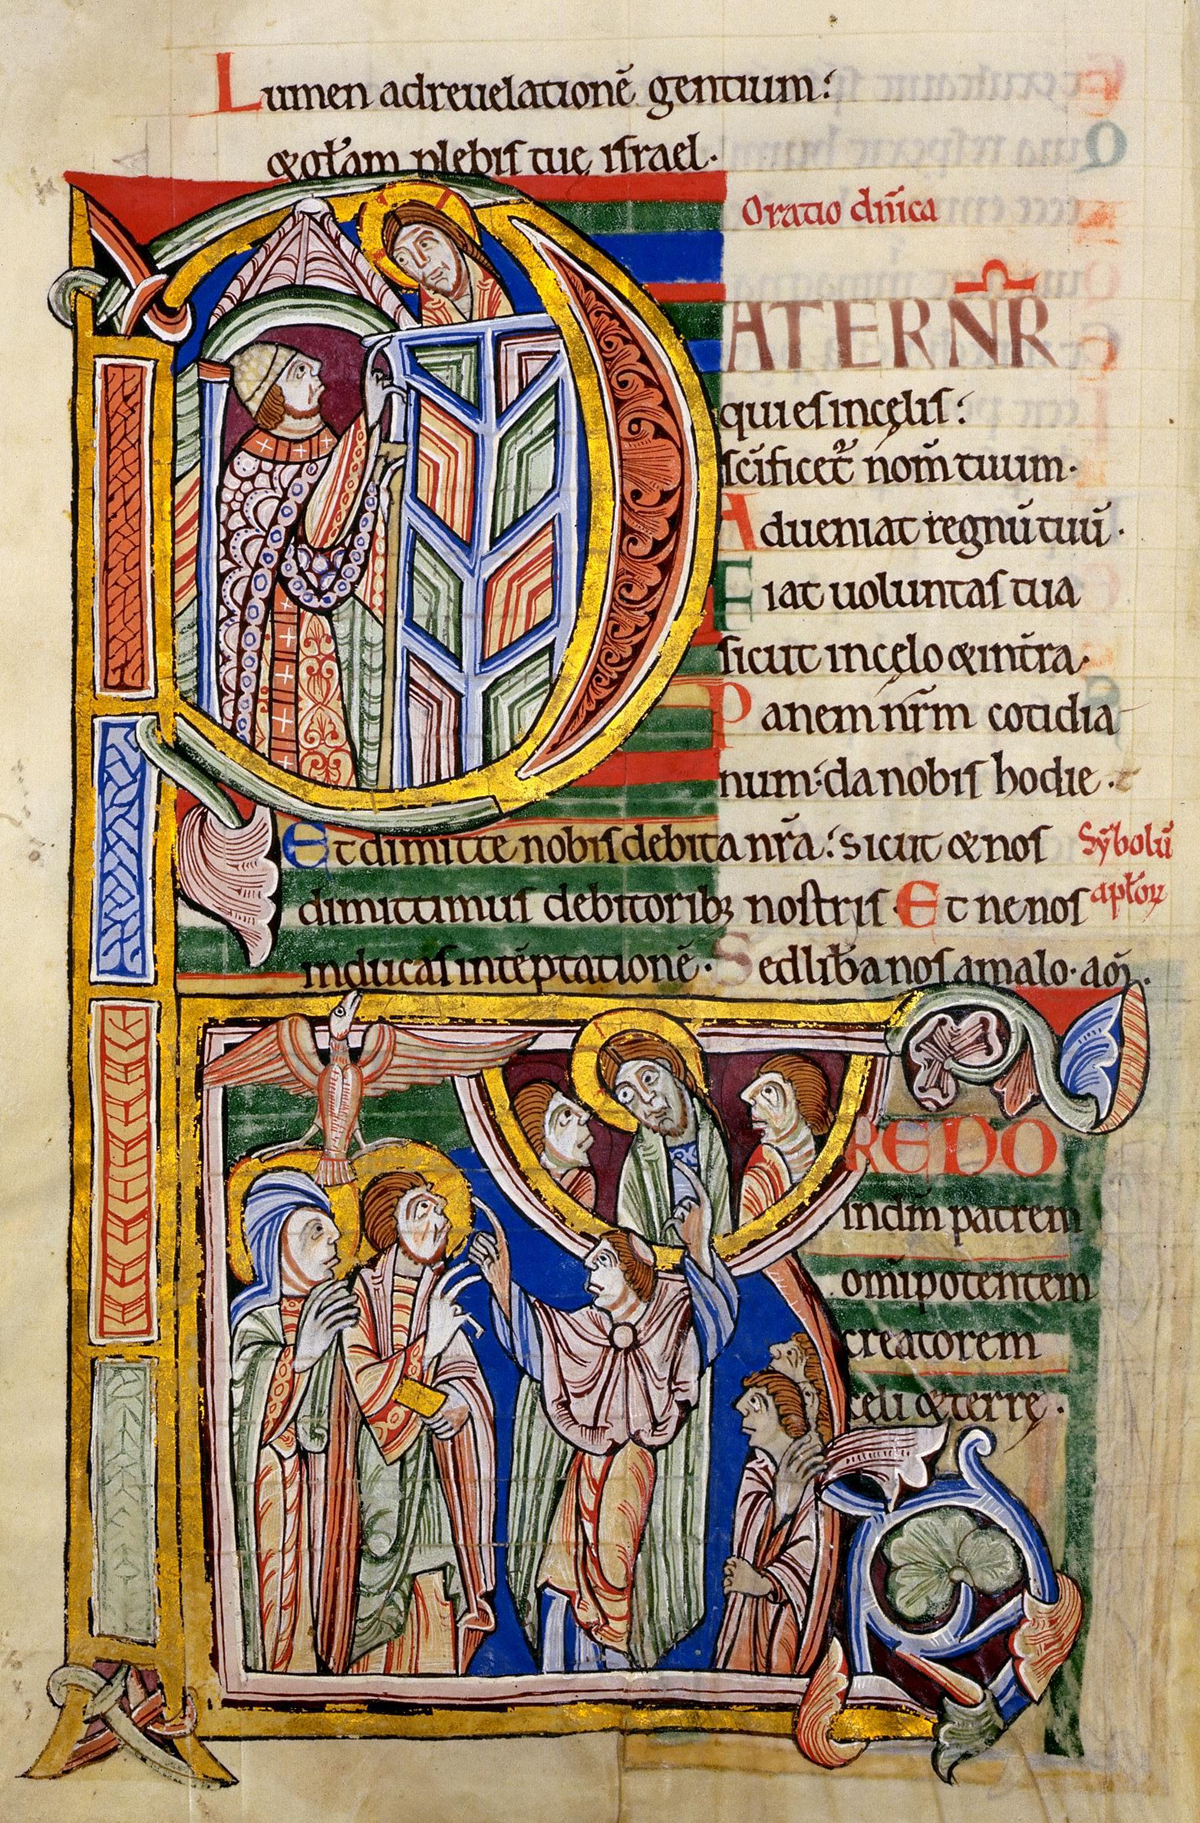 Lumen adreuelationē gentium:
&gľam plebis tuę israel.
Oratio dn̄ica
ATER NR̄
qui es in cęlis:
sc̄ificet᷑ nom̄ tuum.
Adueniat regnū tuū.
Fiat uoluntas tua
sicut in cęlo & in tr̄a.
Panem nr̄m cotidia
num: da nobis hodie.
Et dimitte nobis debita nr̄a: sicut & nos
Sȳbolū
dimittimus debitorib; nostris Et ne nos
apľoꝝ
inducas intēptationē. Sed lib̄a nos a malo. am̄.
REDO
in dm̄ patrem
omīpotentem
creatorem
cęli & terrę.